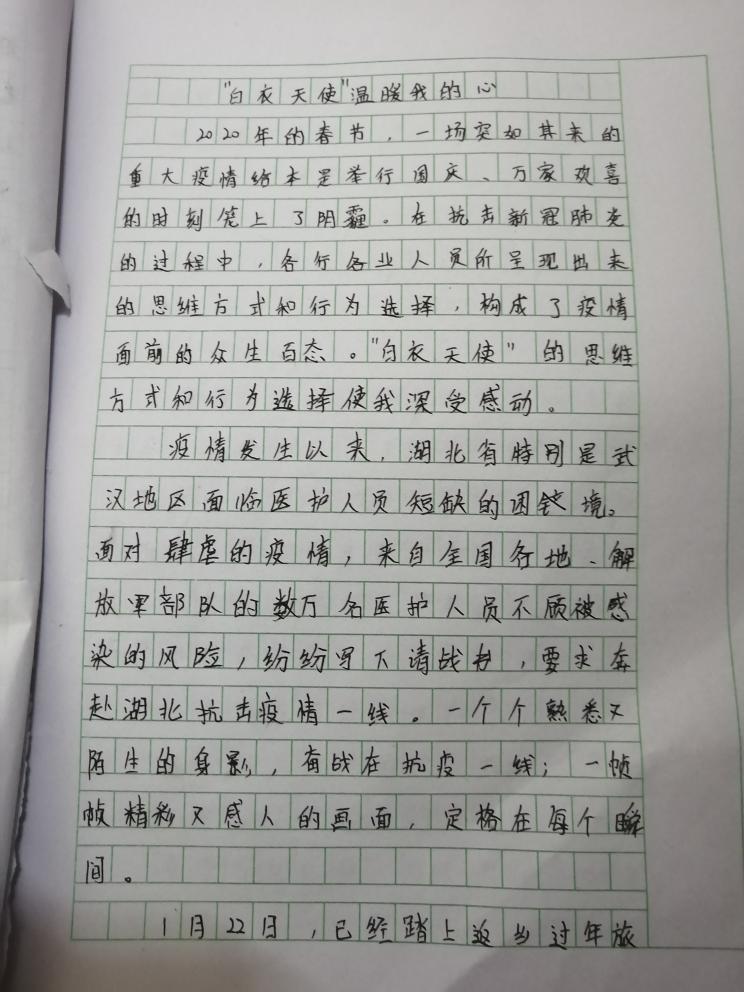 "白衣天使"温暖我的心
2020年的春节，一场突如其来的
重大疫情给本是举行国庆、万家欢喜
的时刻笼上了阴霾。在抗击新冠肺炎
的过程中，各行各业人员所呈现出来
的思维方式和行为选择，构成了疫情
面前的众生百态。"白衣天使"的思维
方式和行为选择使我深受感动。
疫情发生以来，湖北省特别是武
汉地区面临医护人员短缺的困境。
面对肆虐的疫情，来自全国各地、解
放军部队的数万名医护人员不顾被感
染的风险，纷纷写下请战书，要求奔
赴湖北抗击疫情一线。一个个熟悉又
陌生的身影，奋战在抗疫一线；一帧
帧精彩又感人的画面，定格在每个瞬
间。
1月22日，已经踏上返乡过年旅